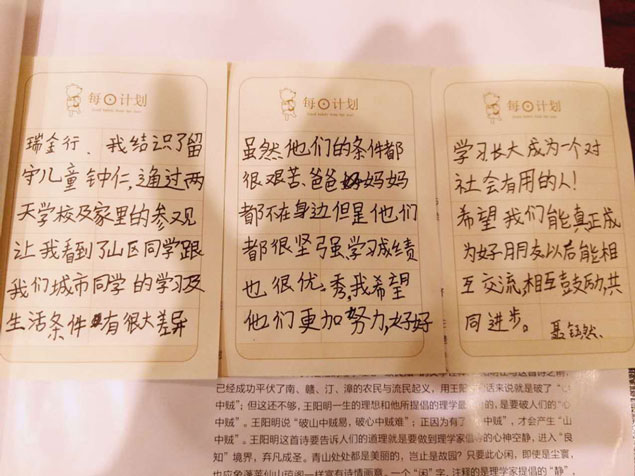 每日计划
瑞金行、我结识了留
守儿童钟仁,通过两
天学校及家里的参观
让我看到了山区同学跟
我们城市同学的学习及
生活条件有很大差异
每日计划
虽然他们的条件都
很艰苦、爸爸妈妈
都不在身边但是他们
都很坚强、学习成绩
也很优秀,我希望
他们更加努力,好好
每日计划
学习长大成为一个对
社会有用的人!
希望我们能真正成
为好朋友以后能相
互交流,相互鼓励,共
同进步。
已经成功平伏了南、赣、汀、漳的农民与流民起义,用王阳
话来说就是破了“
中贼”;但这还不够,王阳明一生的理想和他所提倡的理学
的,是要破人们的“心
中贼”。王阳明说“破山中贼易,破心中贼难”;正因为有了
才会产生“山
中贼”。王阳明这首诗要告诉人们的道理就是要做到理学家倡
的心神空静,进入“良
知”境界,弃凡成圣。青山处处都是美丽的,岂止是故园?只要此心闲,即使是尘寰,